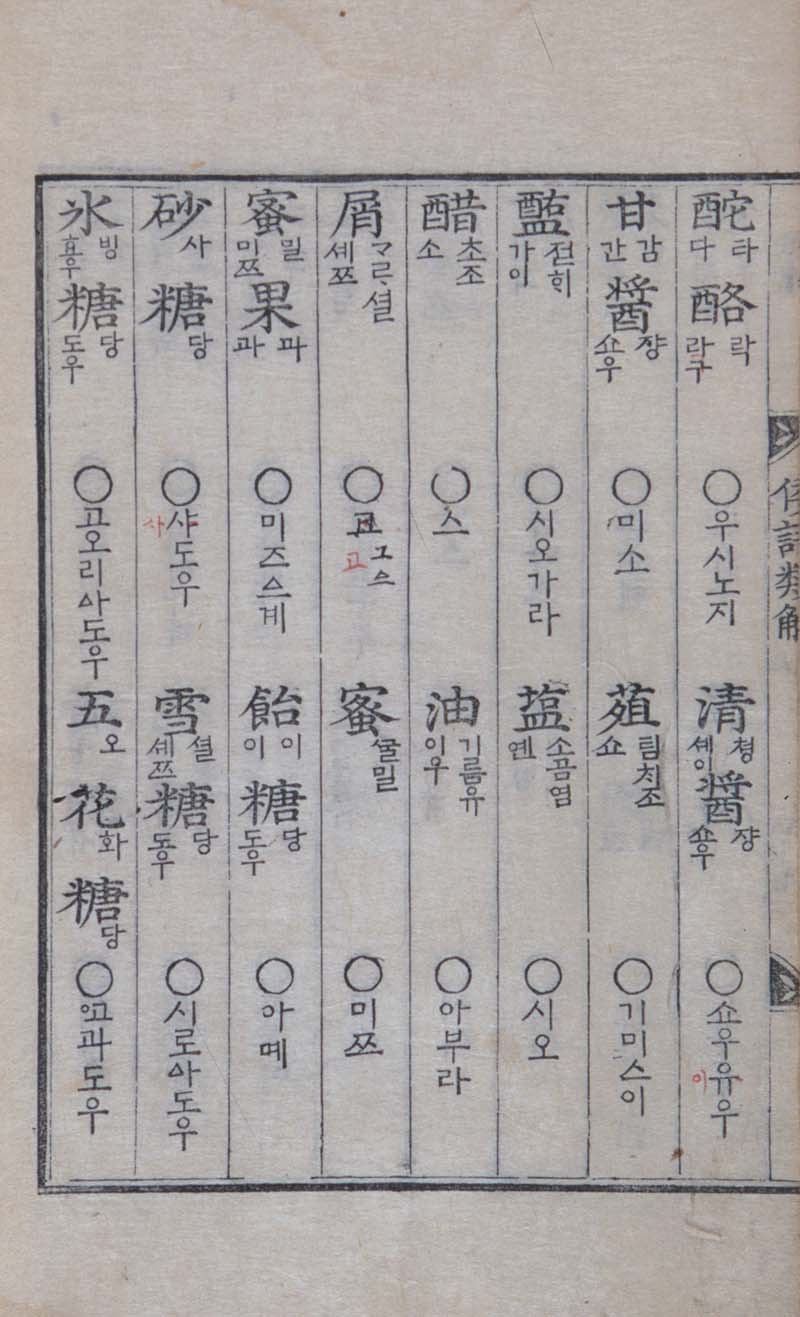 倭語類解
酡 라 다 酪 락 라구 ○우시노지 清 쳥 셰이 醬 쟝 쇼우 ○쇼우유우 이
甘 감 간 醬 쟝 쇼우 ○미소 葅 팀치조 쇼 ○기미스이
醢 젼ᄒᆡ 가이 ○시오가라 塩 소곰염 옌 ○시오
醋 초조 소 ○스 油 기름유 이우 ○아부라
屑 ᄀᆞᄅᆞ셜 셰쯔 ○고 고그스 蜜 ᄭᅮᆯ밀 ○미쯔
蜜 밀 미쯔 果 과 과 ○미즈스게 飴 이 이 糖 당 도우 ○아메
砂 사 糖 당 ○샤도우 사 雪 셜 셰쯔 糖 당 도우 ○시로ᅀᅡ도우
氷 빙 효우 糖 당 도우 ○고오리ᅀᅡ도우 五 오 花 화 糖 당 ○과도우